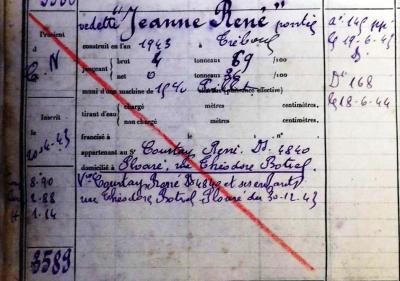 vedette "Jeanne René" pontée
construit en l'an 1943 à Tréboul
jaugeant
brut 4 tonneaux 69 /100
net 0 tonneaux 36 /100
muni d'une machine de
tirant d'eau
chargé mètres centimètres.
non chargé mètres centimètres.
francisé à le n°
appartenant au Sr Courtay René Dz 4840
domicilié à Ploaré, rue Théodore Botrel.
Vve Courtay René Dz 4840 et ses enfants
rue Théodore Botrel Ploaré du 30.12.43
Provient
d
C. N
Inscrit
le
20.4.43
8.90
2.88
1.24
3589
le 19.6.43
D° 168
le 18-6-44